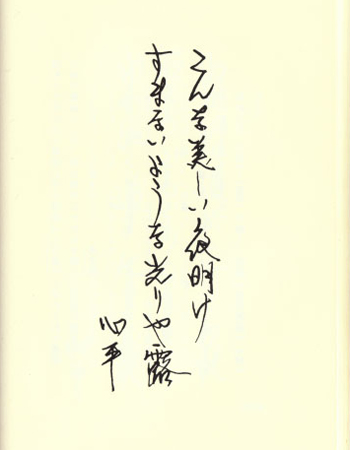 こんな美しい夜明け
すまないような光りや露
心平